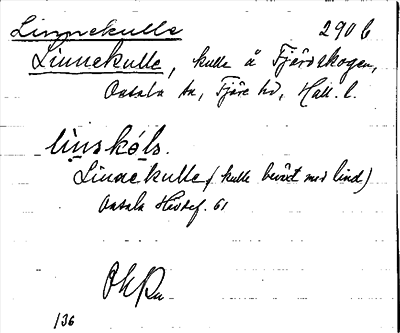 Linnekulle 290 b
Linnekulle, kulle å Fjärdskogen,
Onsala sn, Fjäre hd, Hall. l.
linskóls.
Linnekulle (kulle beväxt med lind)
Onsala Hembef. 61
136